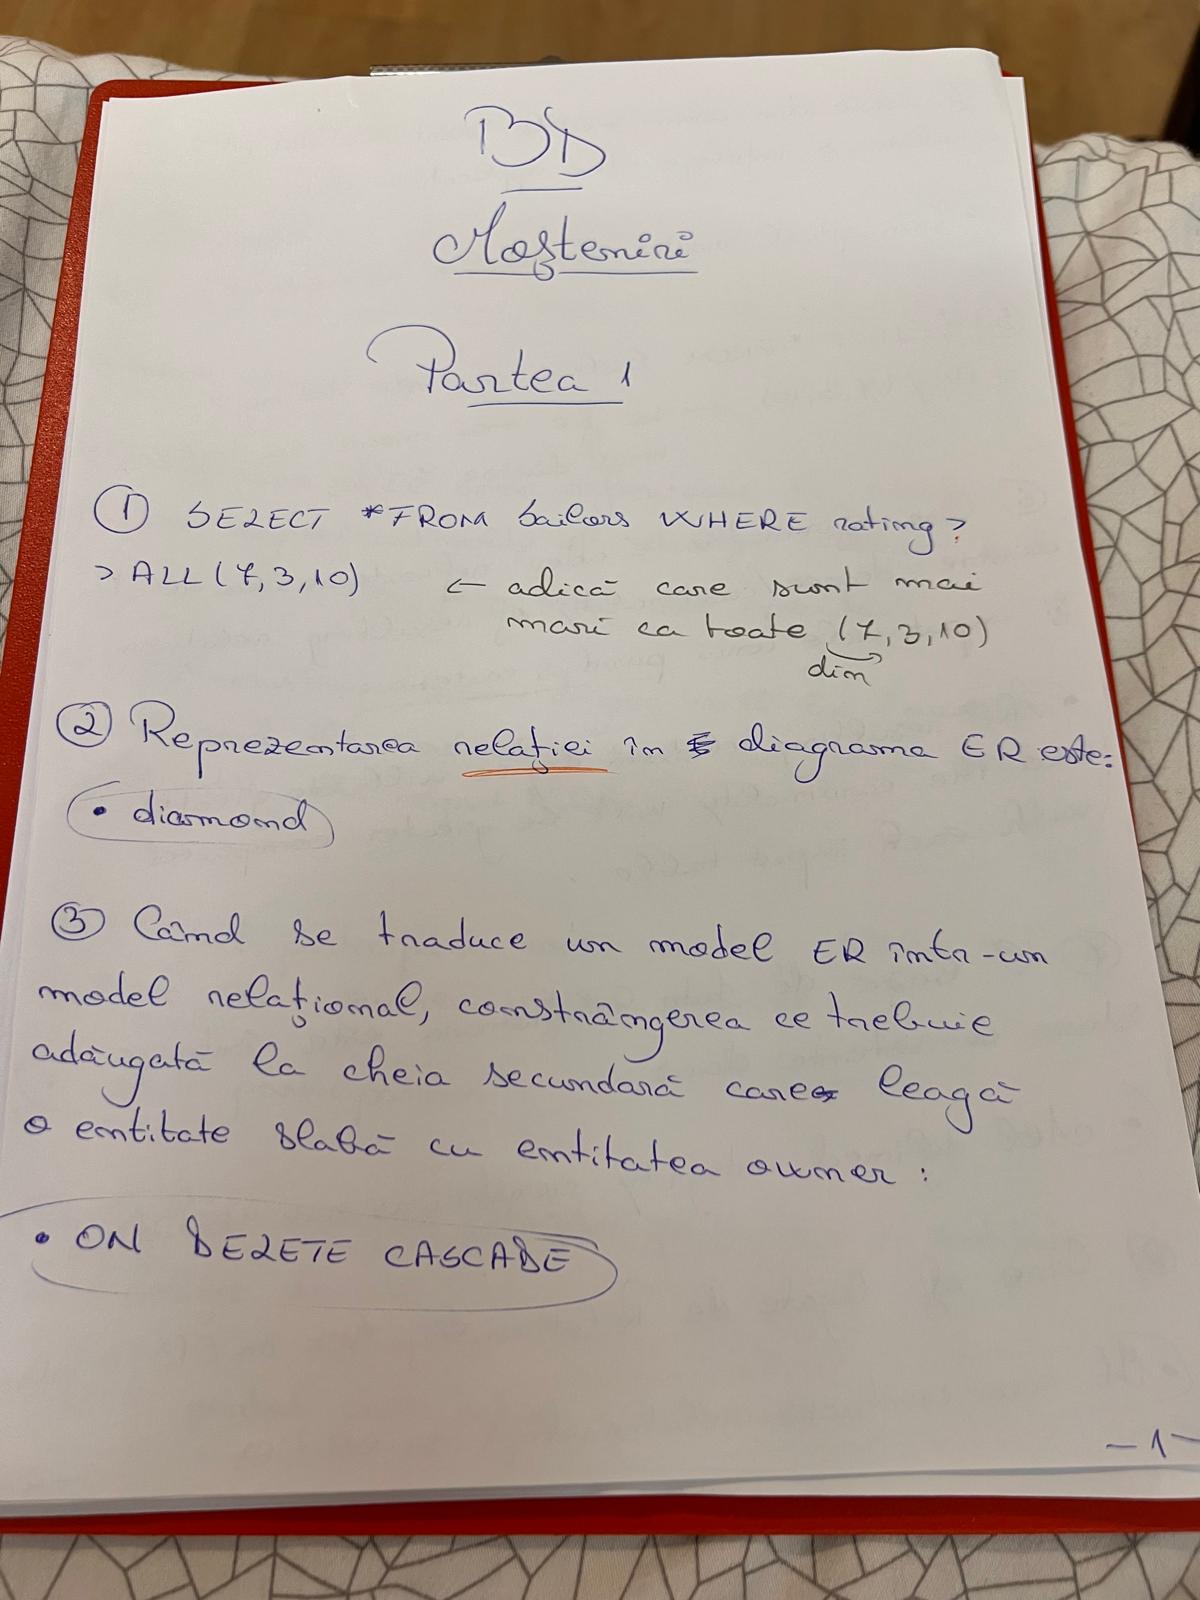 BD
Moșteniri
Partea 1
① SELECT * FROM Sailors WHERE rating?
> ALL (7, 3, 10) ← adică care sunt mai
mari ca toate (7, 3, 10)
din
② Reprezentarea relației în diagrama ER este:
• diamond
③ Când se traduce un model ER într-un
model relațional, constrângerea ce trebuie
adăugată la cheia secundară care leagă
o entitate slabă cu entitatea owner :
• ON DELETE CASCADE
- 1 -